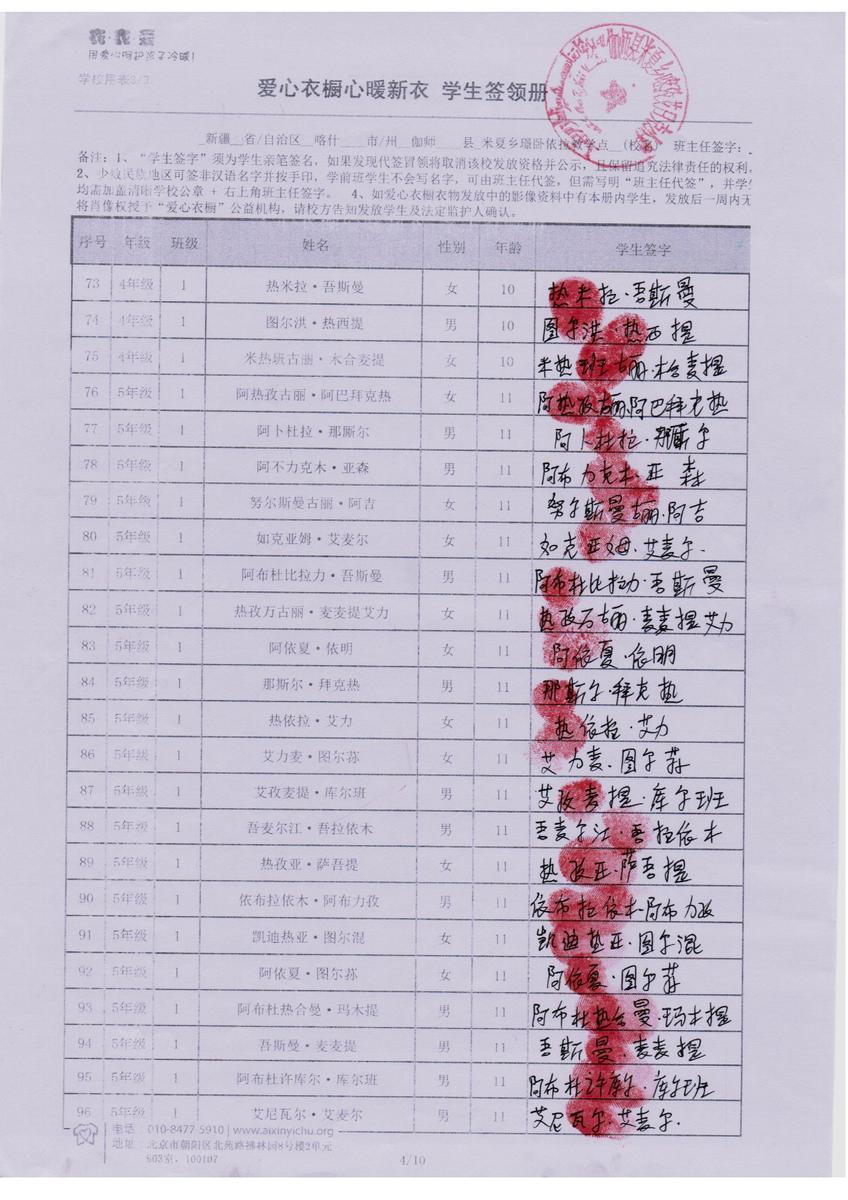 衣·衣·爱
用爱心呵护孩子冷暖!
学校用表3/3
爱心衣橱心暖新衣 学生签领册
新疆 省/自治区 喀什 市/州 伽师 县 米夏乡璟卧依拉教学点 (校名) 班主任签字:
备注:1、“学生签字”须为学生亲笔签名,如果发现代签冒领将取消该校发放资格并公示,且保留追究法律责任的权利。
2、少数民族地区可签非汉语名字并按手印,学前班学生不会写名字,可由班主任代签,但需写明“班主任代签”,并学
均需加盖清晰学校公章 + 右上角班主任签字。 4、如爱心衣橱衣物发放中的影像资料中有本册内学生,发放后一周内无
将肖像权授予“爱心衣橱”公益机构,请校方告知发放学生及法定监护人确认。
序号 年级 班级 姓名 性别 年龄 学生签字
73 4年级 1 热米拉·吾斯曼 女 10 热米拉·吾斯曼
74 4年级 1 图尔洪·热西提 男 10 图尔洪·热西提
75 4年级 1 米热班古丽·木合麦提 女 10 米热班古丽·木合麦提
76 5年级 1 阿热孜古丽·阿巴拜克热 女 11 阿热孜古丽·阿巴拜克热
77 5年级 1 阿卜杜拉·那厮尔 男 11 阿卜杜拉·那厮尔
78 5年级 1 阿不力克木·亚森 男 11 阿布力克木·亚森
79 5年级 1 努尔斯曼古丽·阿吉 女 11 努尔斯曼古丽·阿吉
80 5年级 1 如克亚姆·艾麦尔 女 11 如克亚姆·艾麦尔·
81 5年级 1 阿布杜比拉力·吾斯曼 男 11 阿布杜比拉力·吾斯曼
82 5年级 1 热孜万古丽·麦麦提艾力 女 11 热孜万古丽·麦麦提艾力
83 5年级 1 阿依夏·依明 女 11 阿依夏·依明
84 5年级 1 那斯尔·拜克热 男 11 那斯尔·拜克热
85 5年级 1 热依拉·艾力 女 11 热依拉·艾力
86 5年级 1 艾力麦·图尔荪 女 11 艾力麦·图尔荪
87 5年级 1 艾孜麦提·库尔班 男 11 艾孜麦提·库尔班
88 5年级 1 吾麦尔江·吾拉依木 男 11 吾麦尔江·吾拉依木
89 5年级 1 热孜亚·萨吾提 女 11 热孜亚·萨吾提
90 5年级 1 依布拉依木·阿布力孜 男 11 依布拉依木·阿布力孜
91 5年级 1 凯迪热亚·图尔混 女 11 凯迪热亚·图尔混
92 5年级 1 阿依夏·图尔荪 女 11 阿依夏·图尔荪
93 5年级 1 阿布杜热合曼·玛木提 男 11 阿布杜热合曼·玛木提
94 5年级 1 吾斯曼·麦麦提 男 11 吾斯曼·麦麦提
95 5年级 1 阿布杜许库尔·库尔班 男 11 阿布杜许库尔·库尔班
96 5年级 1 艾尼瓦尔·艾麦尔 男 11 艾尼瓦尔·艾麦尔·
电话:010-8477-5910 | www.aixinyichu.org
地址:北京市朝阳区北苑路拂林园8号楼2单元
803室,100107
4/10